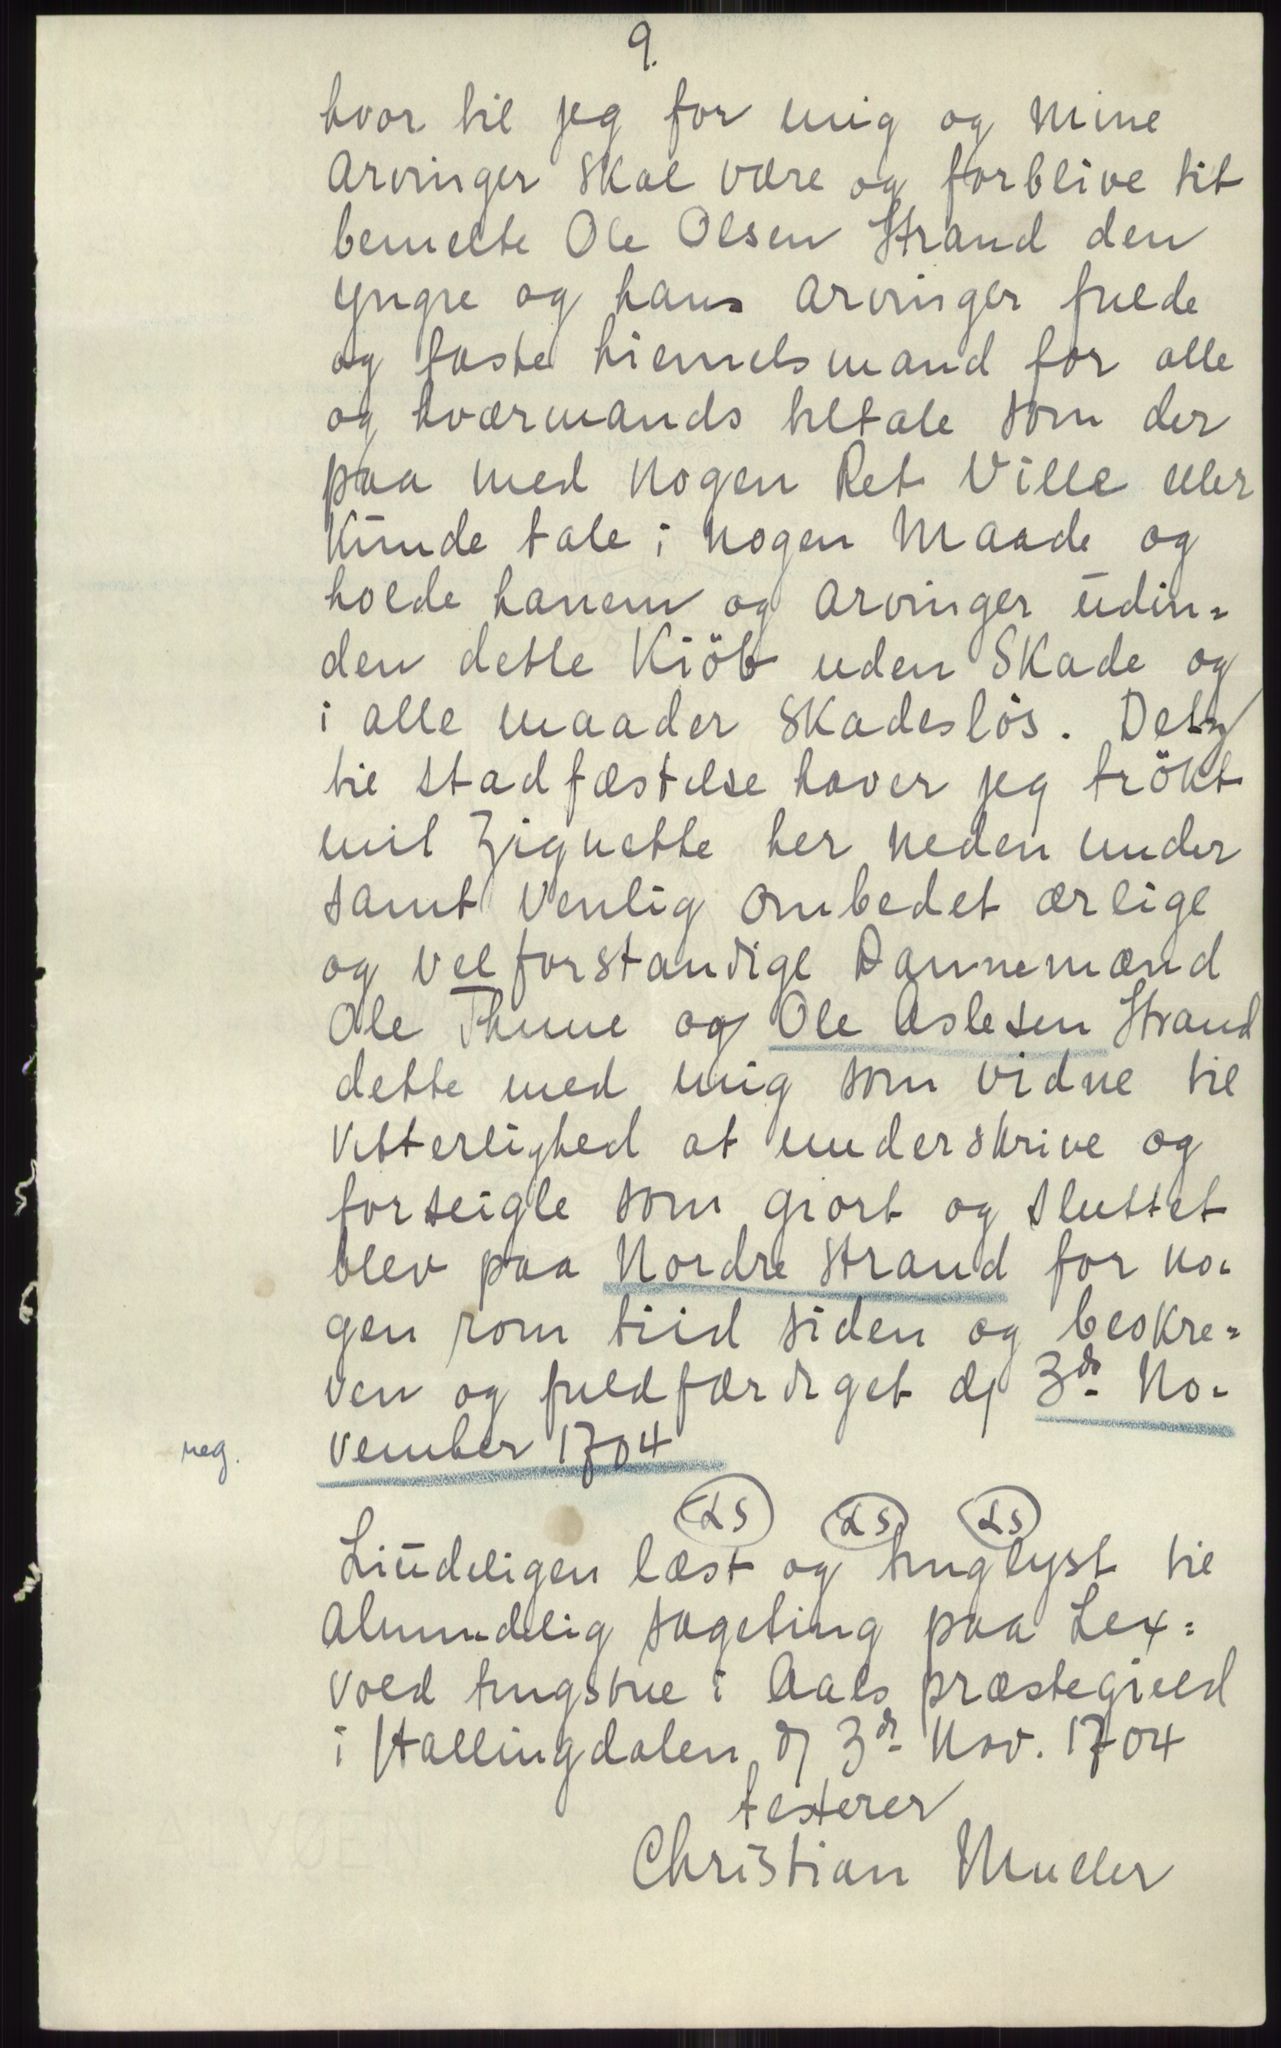 9.
hvor til jeg for mig og Mine
Arvinger Skal være og forblive tit
bemelte Ole Olsen Strand den
Yngre og hans Arvinger fulde
og faste hiemelsmand for alle
og hværmands tiltale som der
paa med Nogen Ret Ville eller
Kunde tale i nogen Maade og
holde hanem og Arvinger udin=
den dette Kiöb uden Skade og
i alle maader Skadeslös. Dets
til stadfæstelse haver jeg trökt
mit Zignette her neden under
samt Venlig ombedet ærlige
og velforstandige Dannemænd
Ole Thune og Ole Aslesen Strand
dette med mig som vidne til
Vitterlighed at underskrive og
forseigle som giort og sluttet
blev paa Nordre Strand for no=
gen rom tiid siden og beskre=
ven og fuldfærdiget d 3de No=
reg. vember 1704
LS LS LS
Liudeligen læst og tinglyst til
Almindelig sageting paa Lex=
vold tingstue i Aals præstegield
i Hallingdalen d 3de Nov. 1704
testerer
Christian Muller